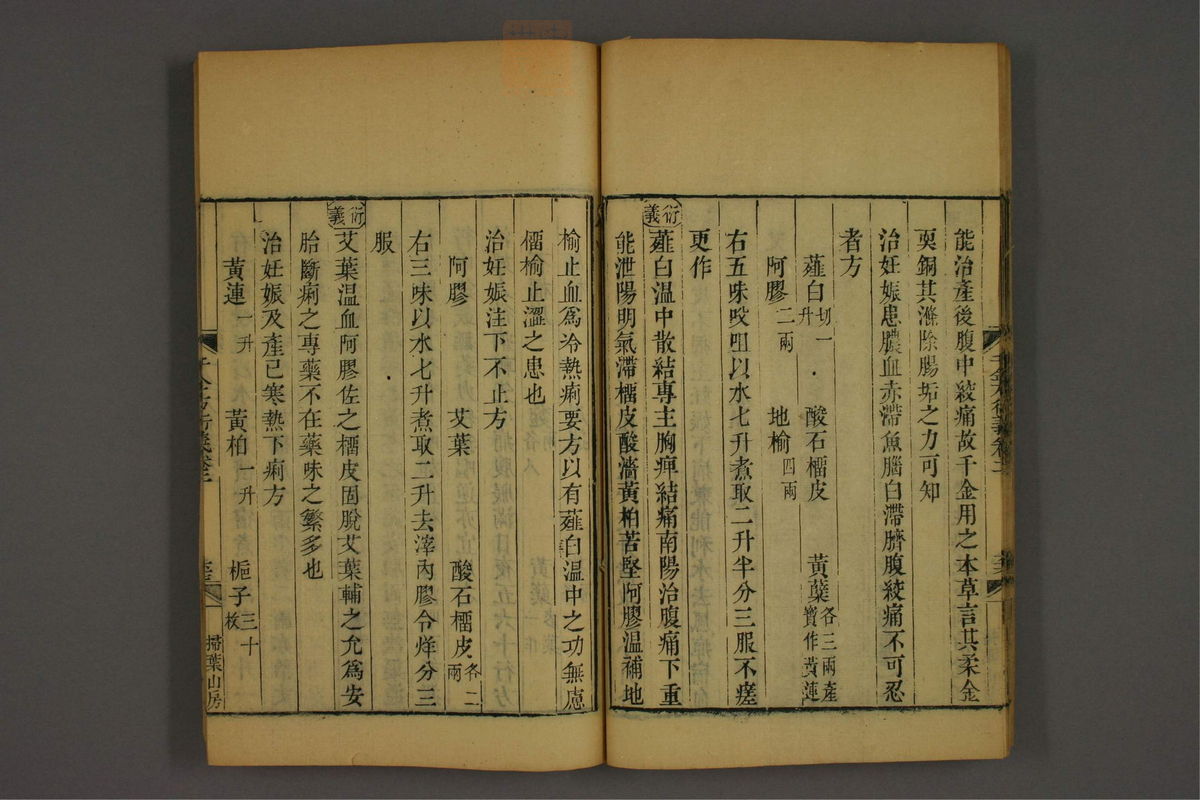 能治產後腹中絞痛故千金用之本草言其柔金
耎銅其滌除腸垢之力可知
治妊娠患膿血赤滯魚腦白滯臍腹絞痛不可忍
者方
薤白切一升 酸石榴皮 黃蘗各三兩產寶作黃連
阿膠二兩 地榆四兩
右五味㕮咀以水七升煮取二升半分三服不瘥
更作
衍義
薤白溫中散結專主胸痺結痛南陽治腹痛下重
能泄陽明氣滯榴皮酸濇黃柏苦堅阿膠溫補地
榆止血爲冷熱痢要方以有薤白溫中之功無慮
榴榆止澀之患也
治妊娠注下不止方
阿膠 艾葉 酸石榴皮各二兩
右三味以水七升煮取二升去滓內膠令烊分三
服
衍義
艾葉溫血阿膠佐之榴皮固脫艾葉輔之允爲安
胎斷痢之專藥不在藥味之繁多也
治妊娠及產已寒熱下痢方
黃連一升 黃柏一升 梔子三十枚
掃葉山房